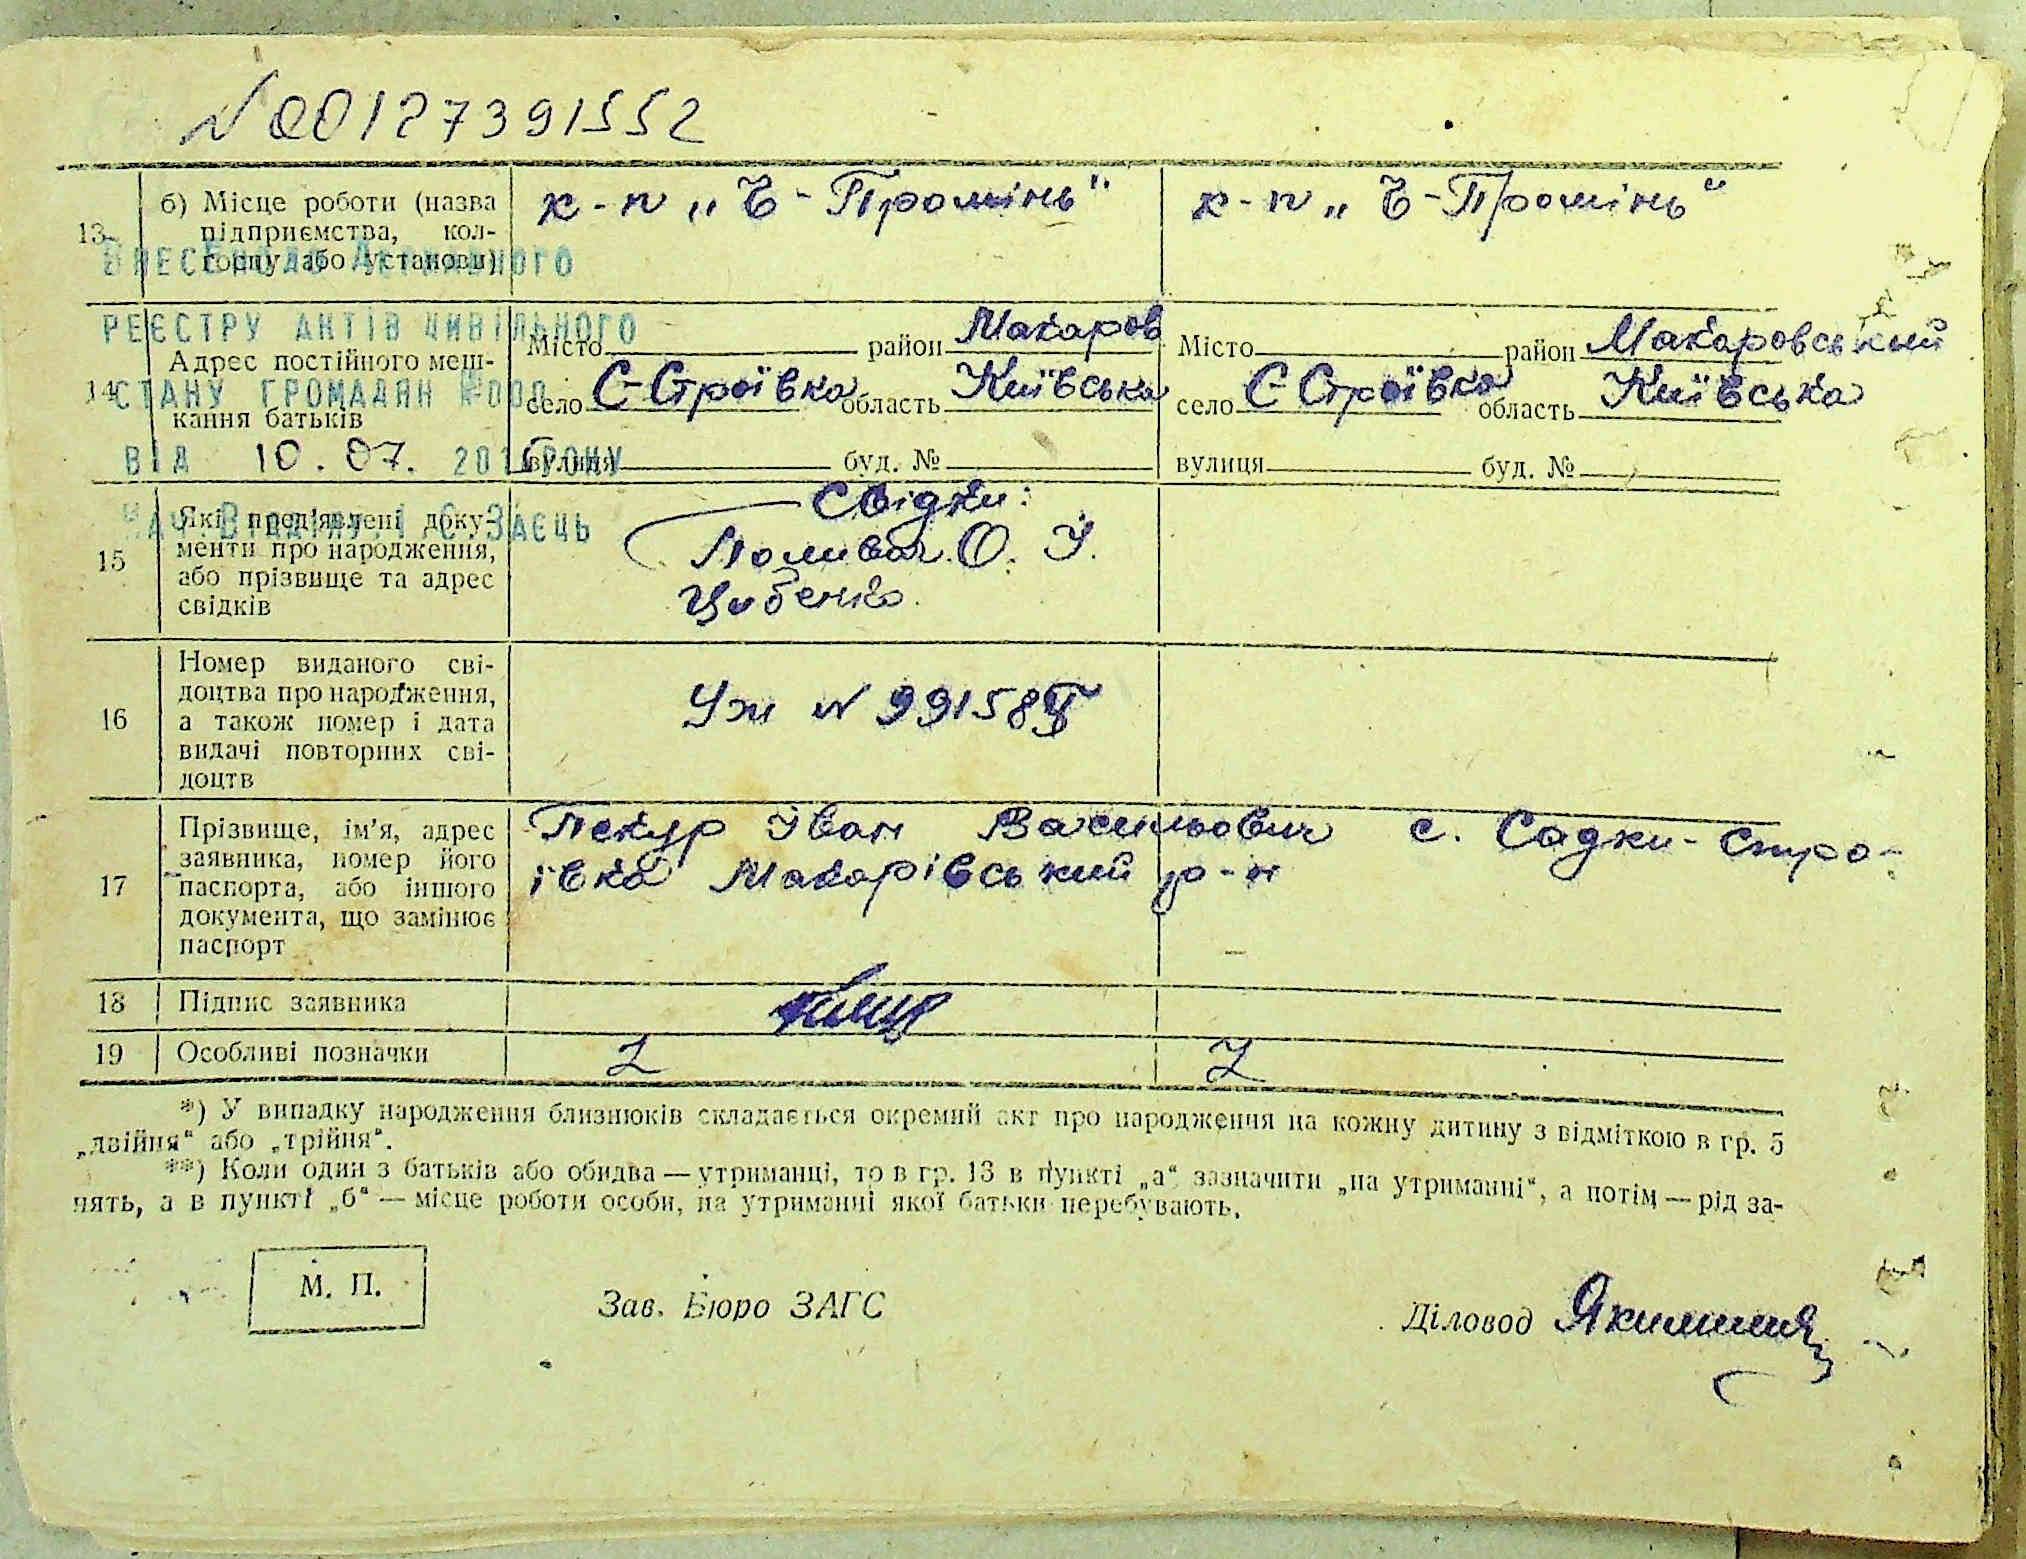 N 00127391552
13
б) Місце роботи (назва
підприємства, кол-
госпу або установи)
к-п „Ч-Промінь"
к-п „Ч-Промінь"
ВНЕСЕНО ДО ДЕРЖАВНОГО
РЕЄСТРУ АКТІВ ЦИВІЛЬНОГО
СТАНУ ГРОМАДЯН №000
ВІД 10.07. 201 РОКУ
НАЧ. ВІДДІЛУ ЗАЄЦЬ
14
Адрес постійного меш-
кання батьків
Місто район Макаров
село С-Строївка область Київська
вулиця буд. №
Місто район Макаровський
село С Строївка область Київська
вулиця буд. №
15
Які пред'явлені доку-
менти про народження,
або прізвище та адрес
свідків
Свідки:
Поливач О. І.
Цибенко
16
Номер виданого сві-
доцтва про народження,
а також номер і дата
видачі повторних сві-
доцтв
N 99158
17
Прізвище, ім'я, адрес
заявника, номер його
паспорта, або іншого
документа, що замінює
паспорт
Пекур Іван Васильович с. Садки-Стро-
ївка Макарівський р-н
18 Підпис заявника
19 Особливі позначки
*) У випадку народження близнюків складається окремий акт про народження на кожну дитину з відміткою в гр. 5
„двійня" або „трійня".
**) Коли один з батьків або обидва — утриманці, то в гр. 13 в пункті „а" зазначити „на утриманні", а потім — рід за-
нять, а в пункті „б" — місце роботи особи, на утриманні якої батьки перебувають.
М. П.
Зав. Бюро ЗАГС
Діловод